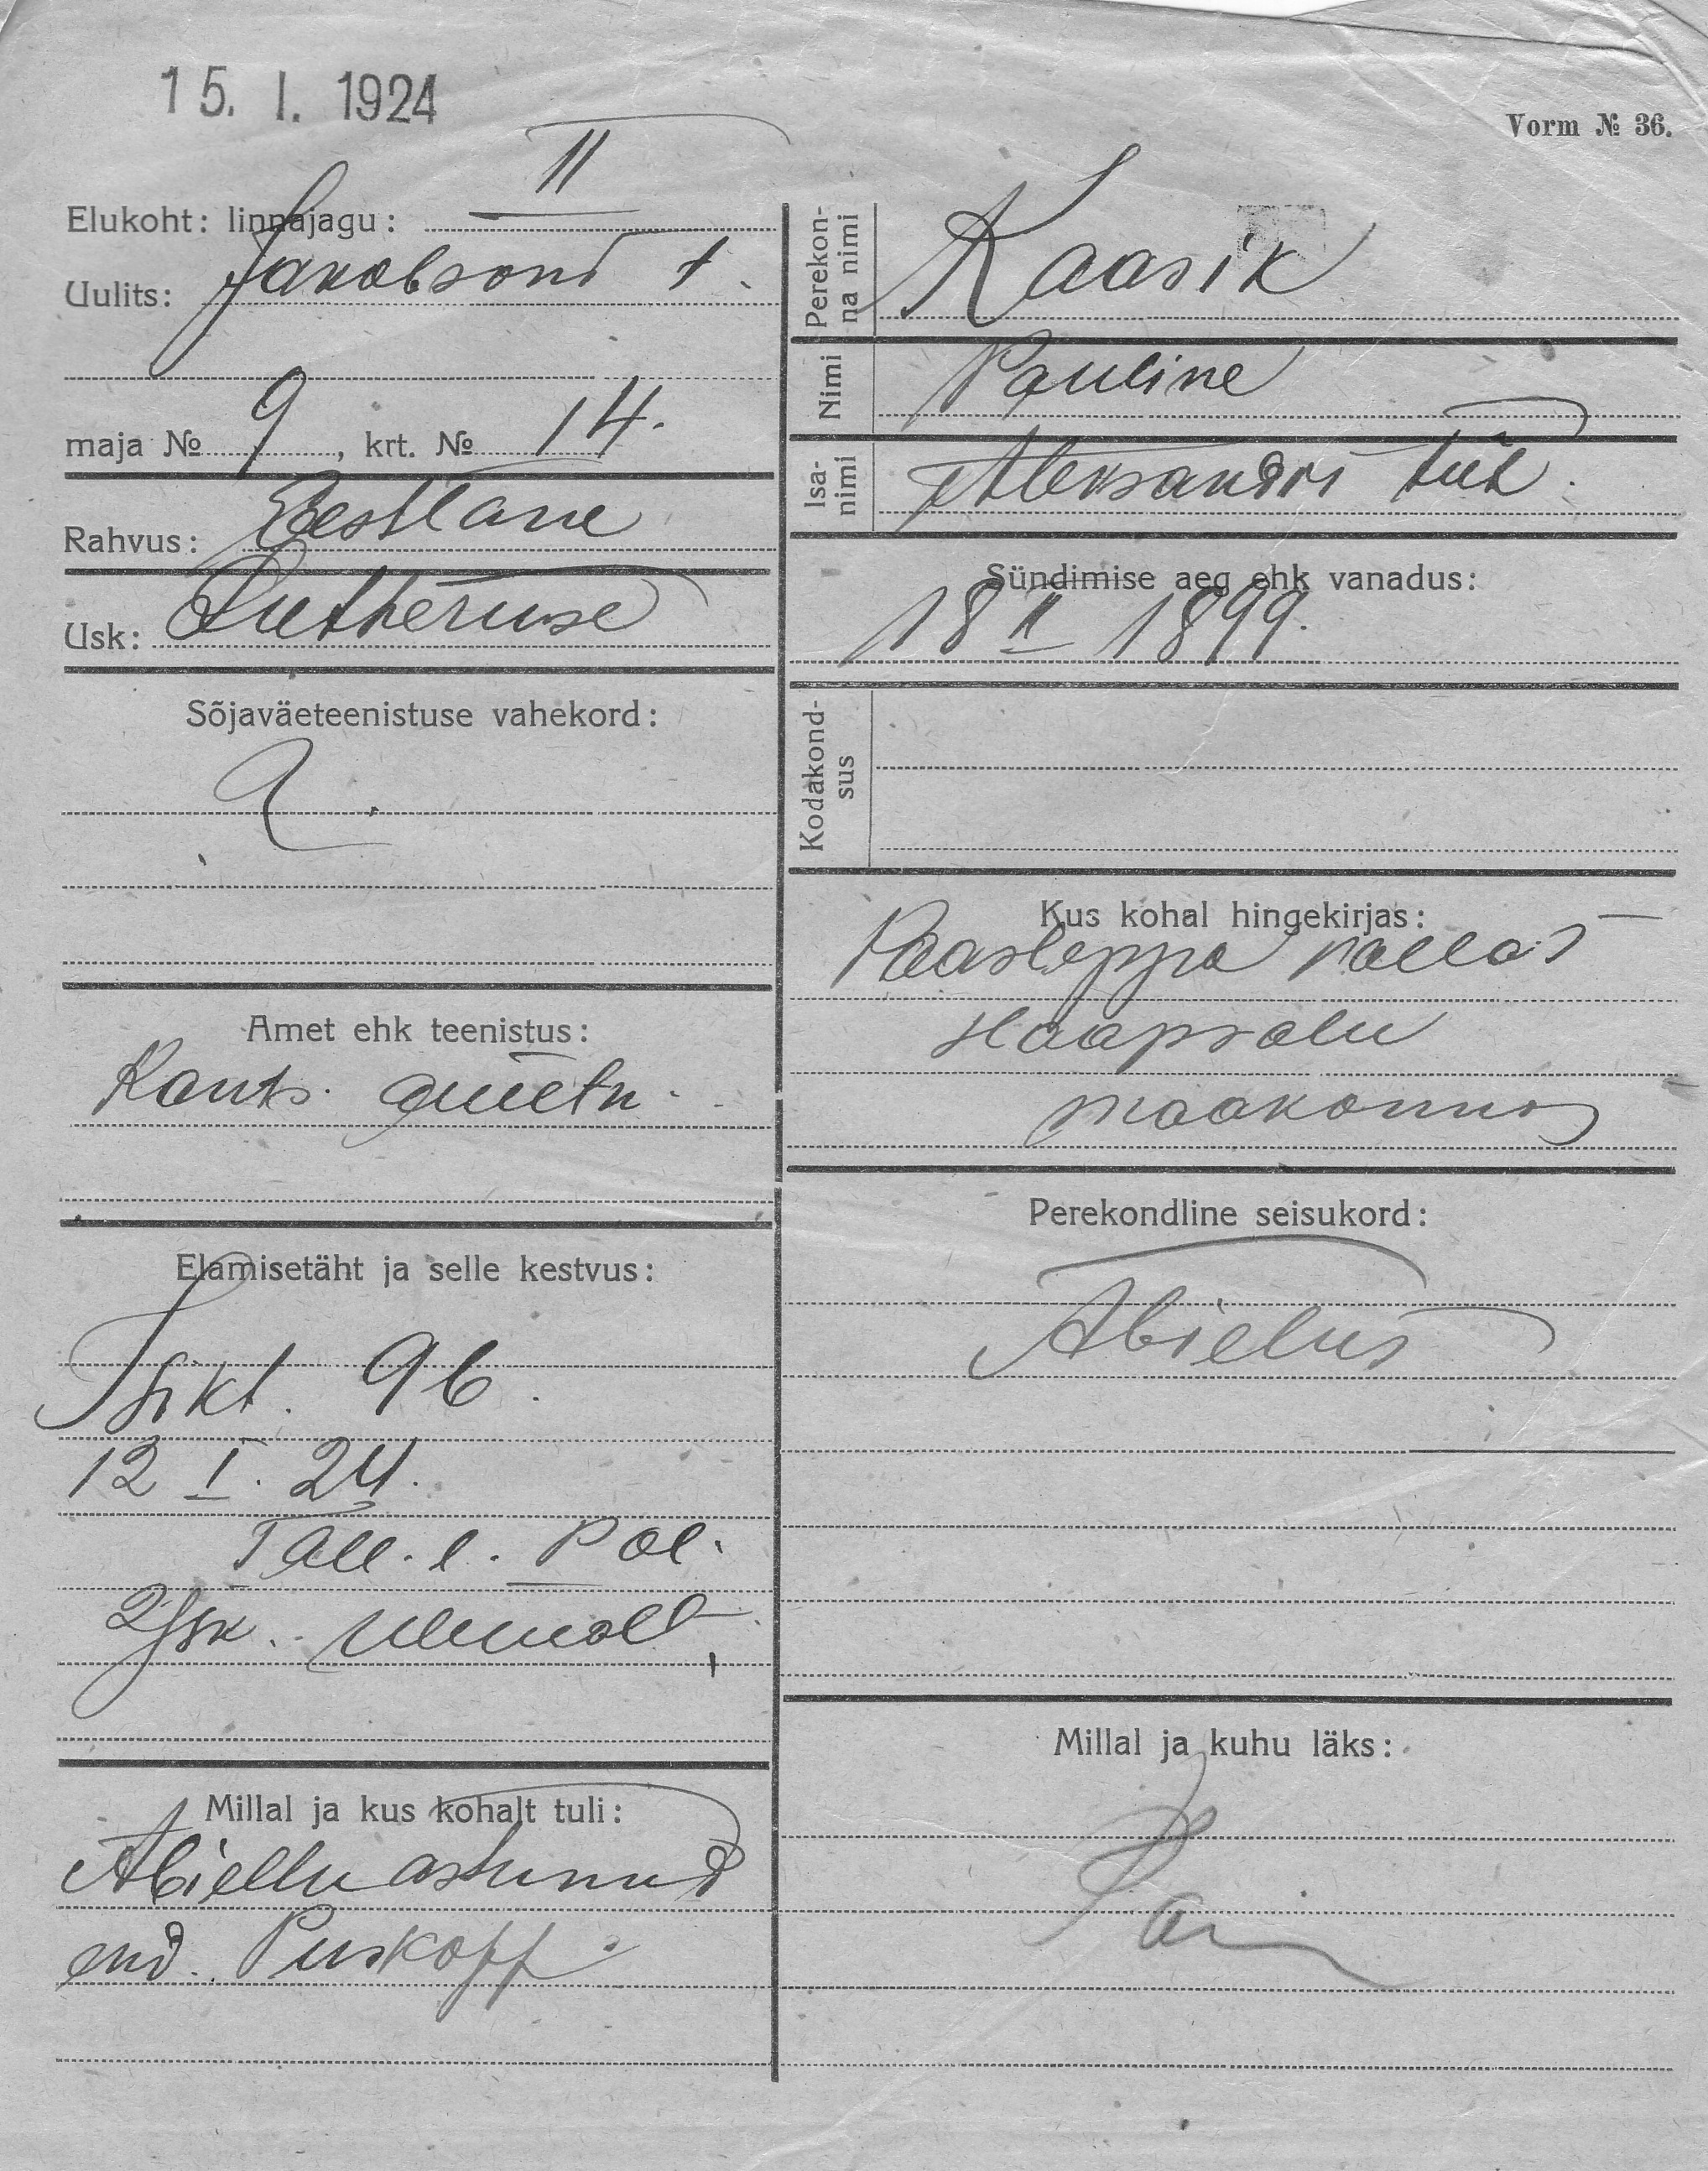 15. I. 1924
Vorm № 36.
Elukoht: linnajagu: II
Uulits: Jakobsoni t.
maja № 9, krt. № 14.
Rahvus: Eestlane
Usk: Lutheruse
Sõjaväeteenistuse vahekord:
Amet ehk teenistus:
Kants. ametn.
Elamisetäht ja selle kestvus:
Isikt. 96.
12 I. 24.
Tall. l. Pol.
2 jsk. ülemalt,
Millal ja kus kohalt tuli:
Abiellu astunud
end. Puskoff.
Perekonna nimi
Kaasik
Nimi
Pauline
Isanimi
Aleksandri tüt.
Sündimise aeg ehk vanadus:
18 II 1899.
Kodakondsus
Kus kohal hingekirjas:
Paasleppa vallas
Haapsalu
maakonnas
Perekondline seisukord:
Abielus
Millal ja kuhu läks: